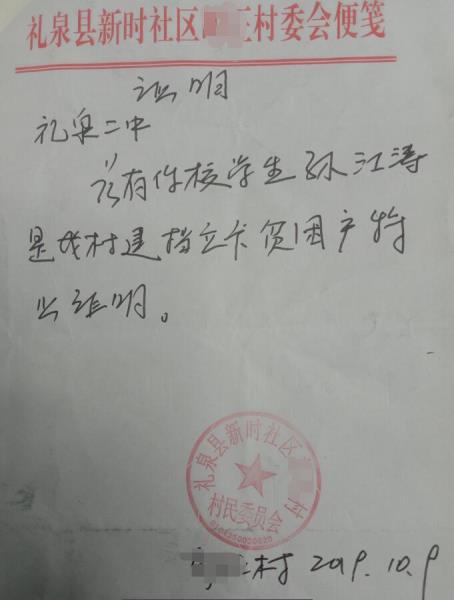 礼泉县新时社区王村委会便笺
证明
礼泉二中
兹有你校学生孙江涛
是我村建档立卡贫困户特
此证明。
礼泉县新时社区村
村民委员会
村 2019.10.9